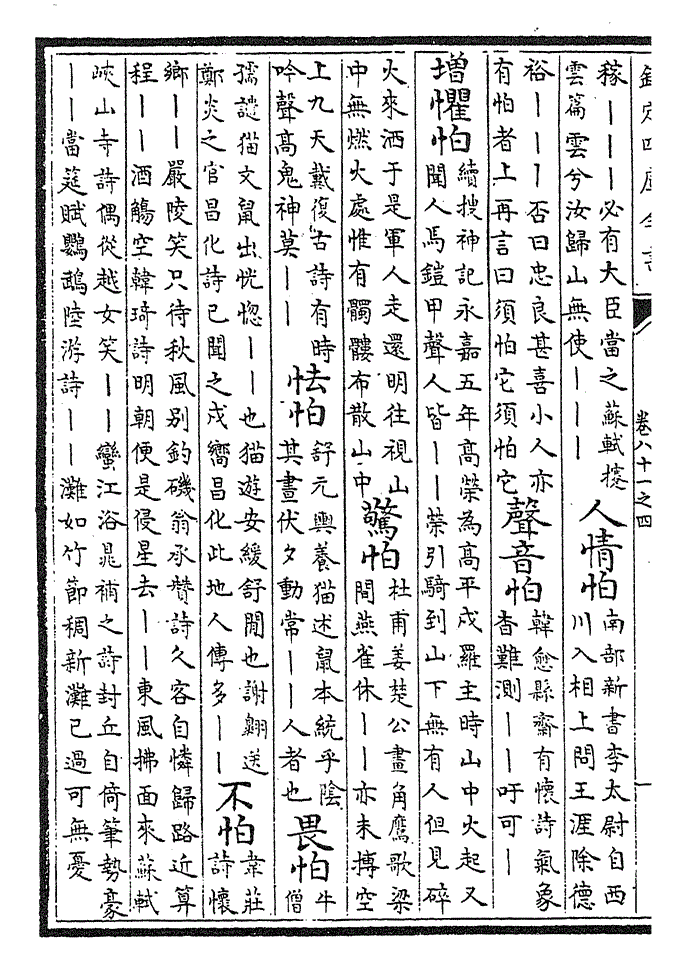 欽定四庫全書
卷八十一之四
一
稼丨丨丨必有大臣當之蘇軾擬
雲篇雲兮汝歸山無使丨丨丨
人情怕
南部新書李太尉自西
川入相上問王涯除德
裕丨丨丨否曰忠良甚喜小人亦
有怕者上再言曰須怕它須怕它
聲音怕
韓愈縣齋有懷詩氣象
杳難測丨丨吁可丨
增懼怕
續搜神記永嘉五年高榮為高平戍羅主時山中火起又
聞人馬鎧甲聲人皆丨丨榮引騎到山下無有人但見碎
火來洒于是軍人走還明往視山
中無燃火處惟有髑髏布散山中
驚怕
杜甫姜楚公畫角鷹歌梁
間燕雀休丨丨亦未摶空
上九天戴復古詩有時
吟聲高鬼神莫丨丨
怯怕
舒元輿養猫述鼠本統乎陰
其晝伏夕動常丨丨人者也
畏怕
牛
僧
孺譴猫文鼠出恍惚丨丨也猫遊安緩舒閒也謝翺送
鄭炎之官昌化詩已聞之戍嚮昌化此地人傳多丨丨
不怕
韋莊
詩懷
鄉丨丨嚴陵笑只待秋風別釣磯翁承贊詩久客自憐歸路近算
程丨丨酒觴空韓琦詩明朝便是侵星去丨丨東風拂面來蘇軾
峽山寺詩偶從越女笑丨丨蠻江浴晁補之詩封丘自倚筆勢豪
丨丨當筵賦鸚鵡陸游詩丨丨灘如竹節稠新灘已過可無憂